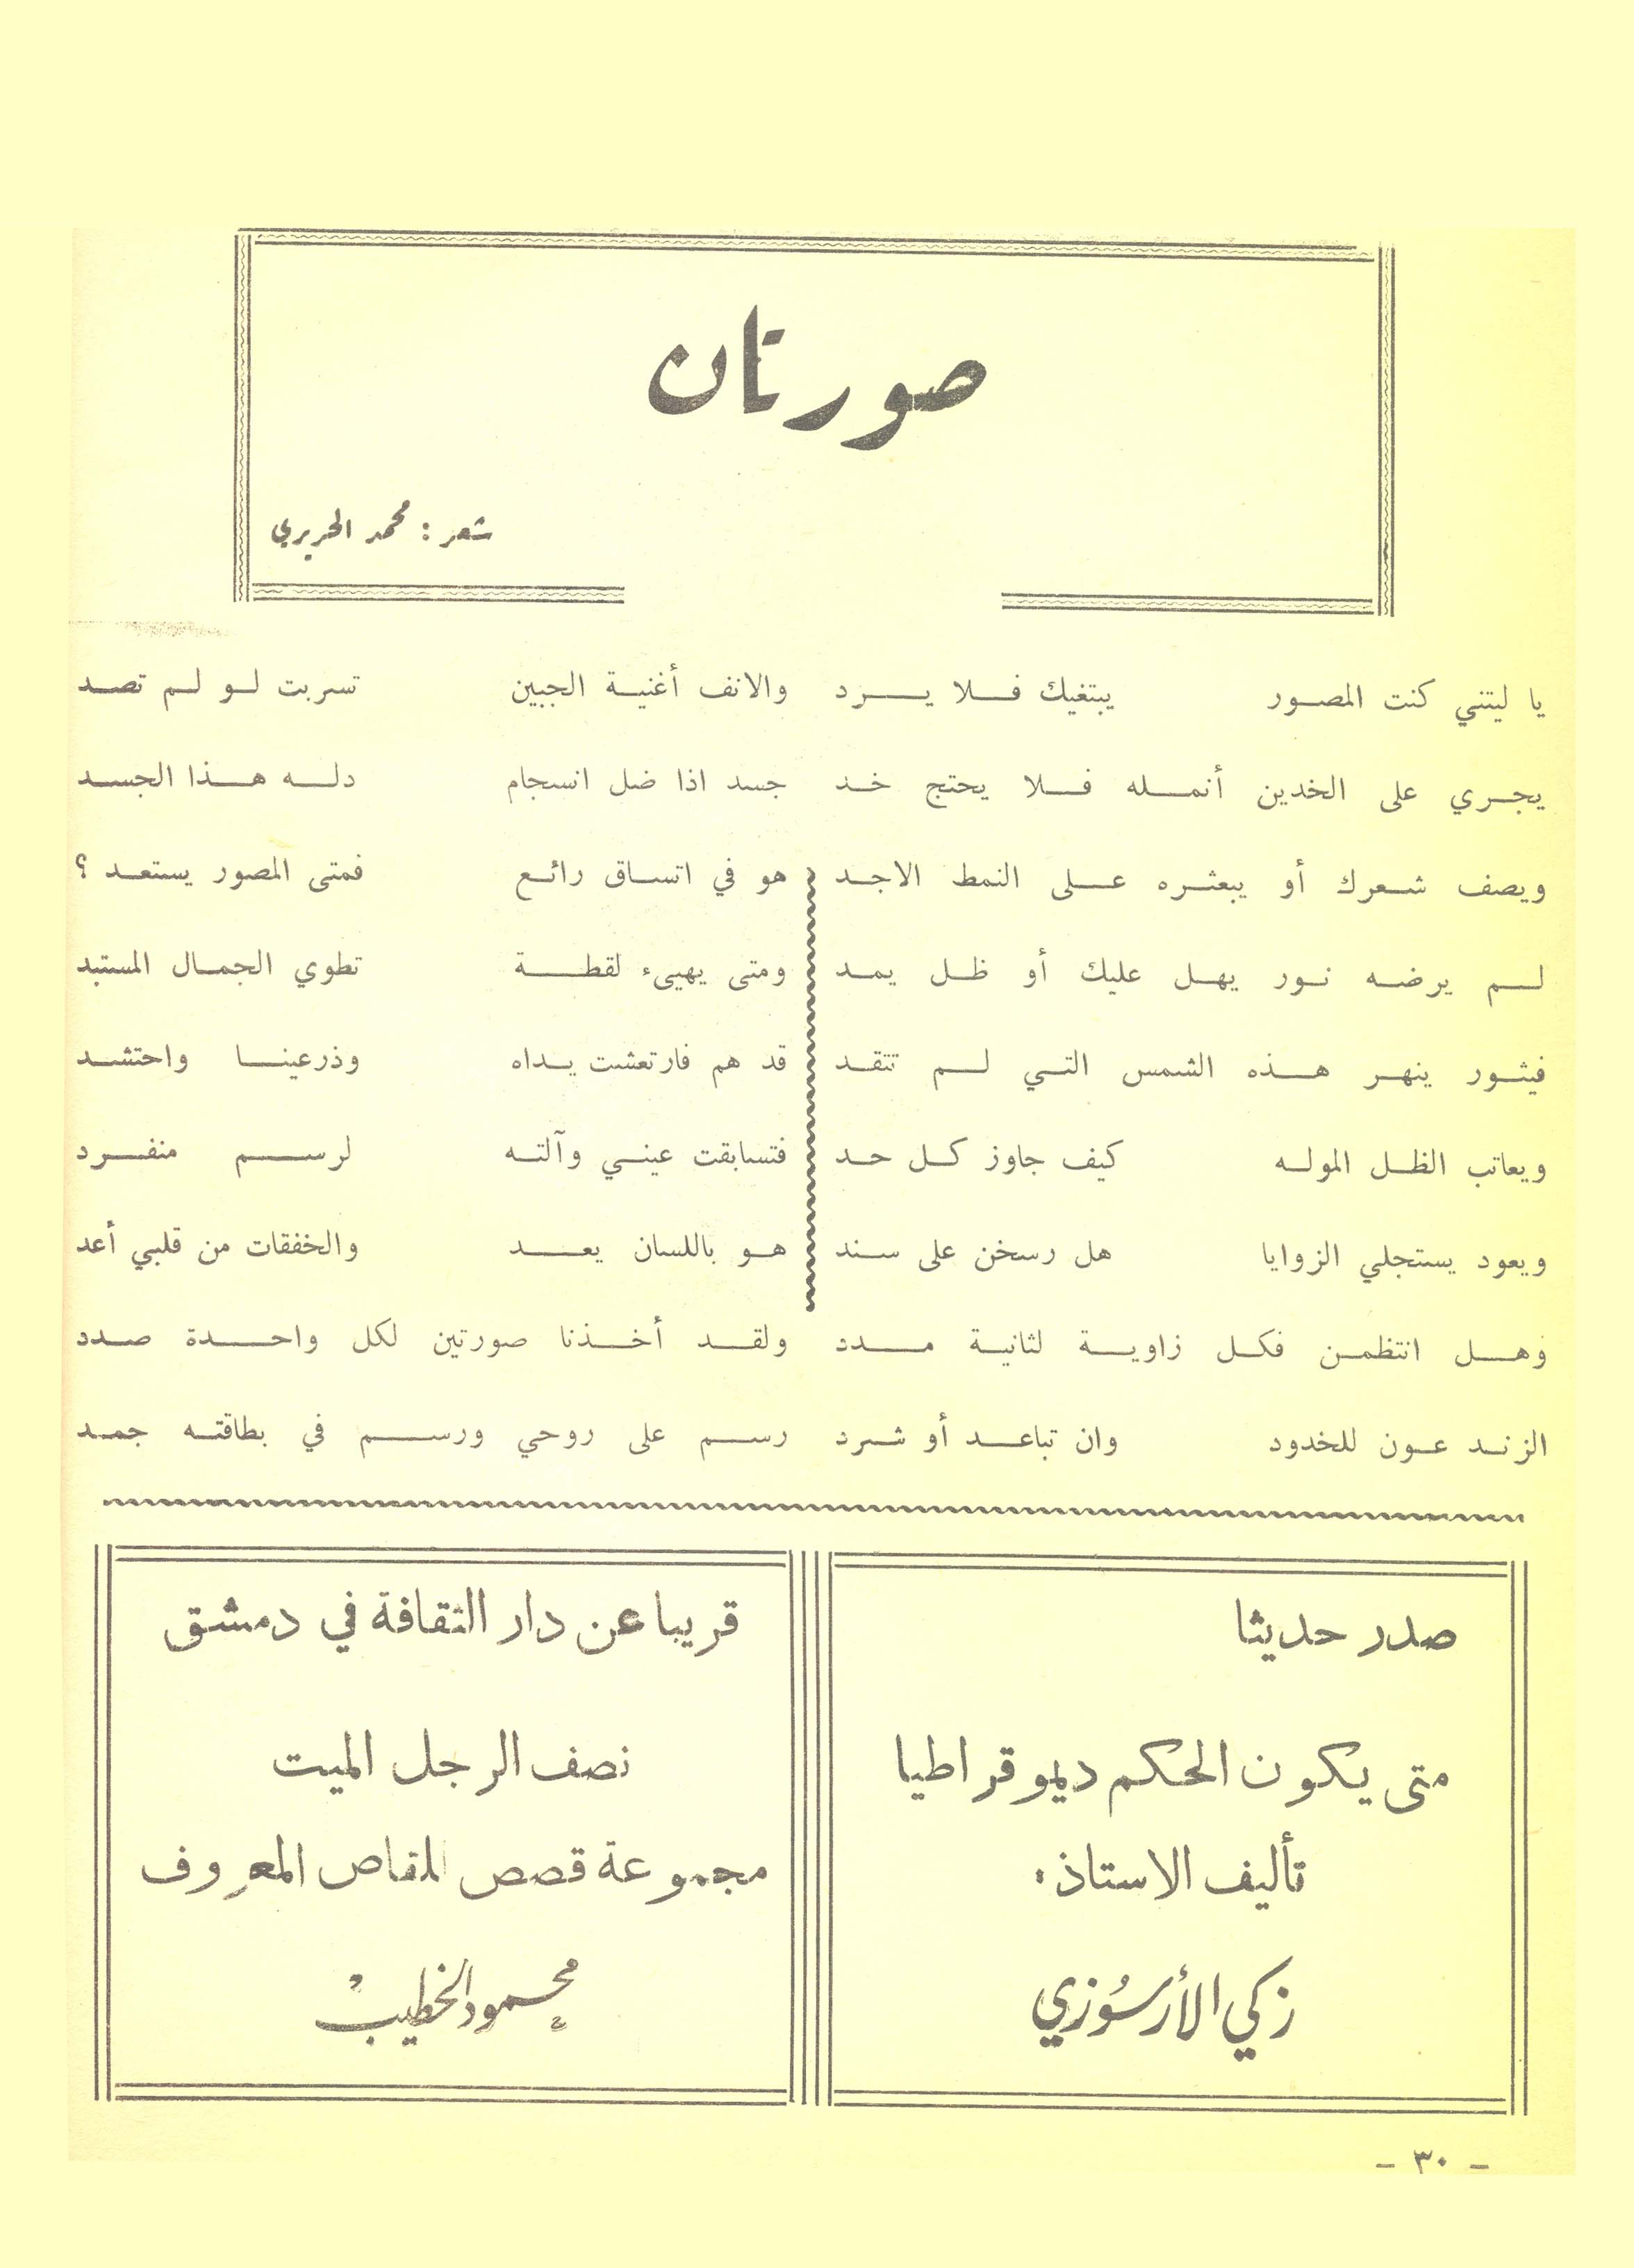 صورتان
شعر : محمد الحريري
يا ليتني كنت المصور يبتغيك فلا يرد
يجري على الخدين أنمله فلا يحتج خد
ويصف شعرك أو يبعثره على النمط الاجد
لم يرضه نور يهل عليك أو ظل يمد
فيثور ينهر هذه الشمس التي لم تتقد
ويعاتب الظل الموله كيف جاوز كل حد
ويعود يستجلي الزوايا هل رسخن على سند
وهل انتظمن فكل زاوية لثانية مدد
الزند عون للخدود وان تباعد أو شرد
والانف أغنية الجبين تسربت لو لم تصد
جسد اذا ضل انسجام دله هذا الجسد
هو في اتساق رائع فمتى المصور يستعد ؟
ومتى يهيىء لقطة تطوي الجمال المستبد
قد هم فارتعشت يداه وذرعينا واحتشد
فتسابقت عيني وآلته لرسم منفرد
هو باللسان يعد والخفقات من قلبي أعد
ولقد أخذنا صورتين لكل واحدة صدد
رسم على روحي ورسم في بطاقته جمد
صدر حديثا
متى يكون الحكم ديموقراطيا
تأليف الاستاذ .
زكي الأرسُوزي
قريبا عن دار الثقافة في دمشق
نصف الرجل الميت
مجموعة قصص للقاص المعروف
محمود الخطيب
- ٣٠ -